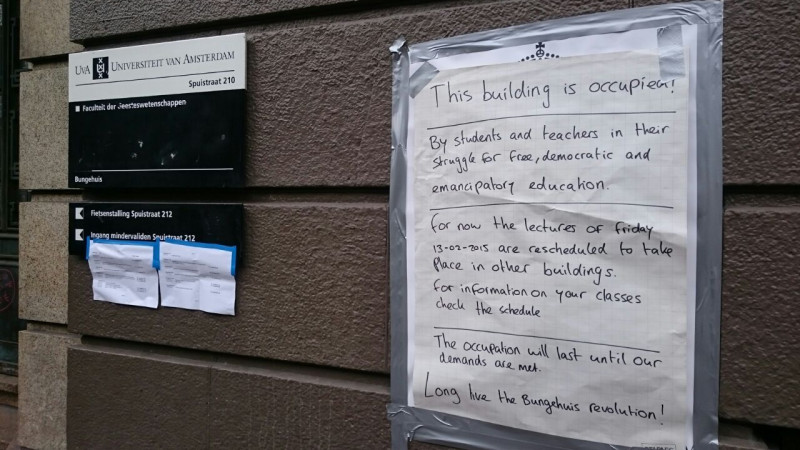 UvA UNIVERSITEIT VAN AMSTERDAM
Spuistraat 210
Faculteit der Geesteswetenschappen
Bungehuis
Fietsenstalling Spuistraat 212
Ingang mindervaliden Spuistraat 212
This building is occupied!
By students and teachers in their
struggle for free, democratic and
emancipatory education.
For now the lectures of Friday
13-02-2015 are rescheduled to take
place in other buildings.
For information on your classes
check the schedule
The occupation will last until our
demands are met.
Long live the Bungehuis revolution!